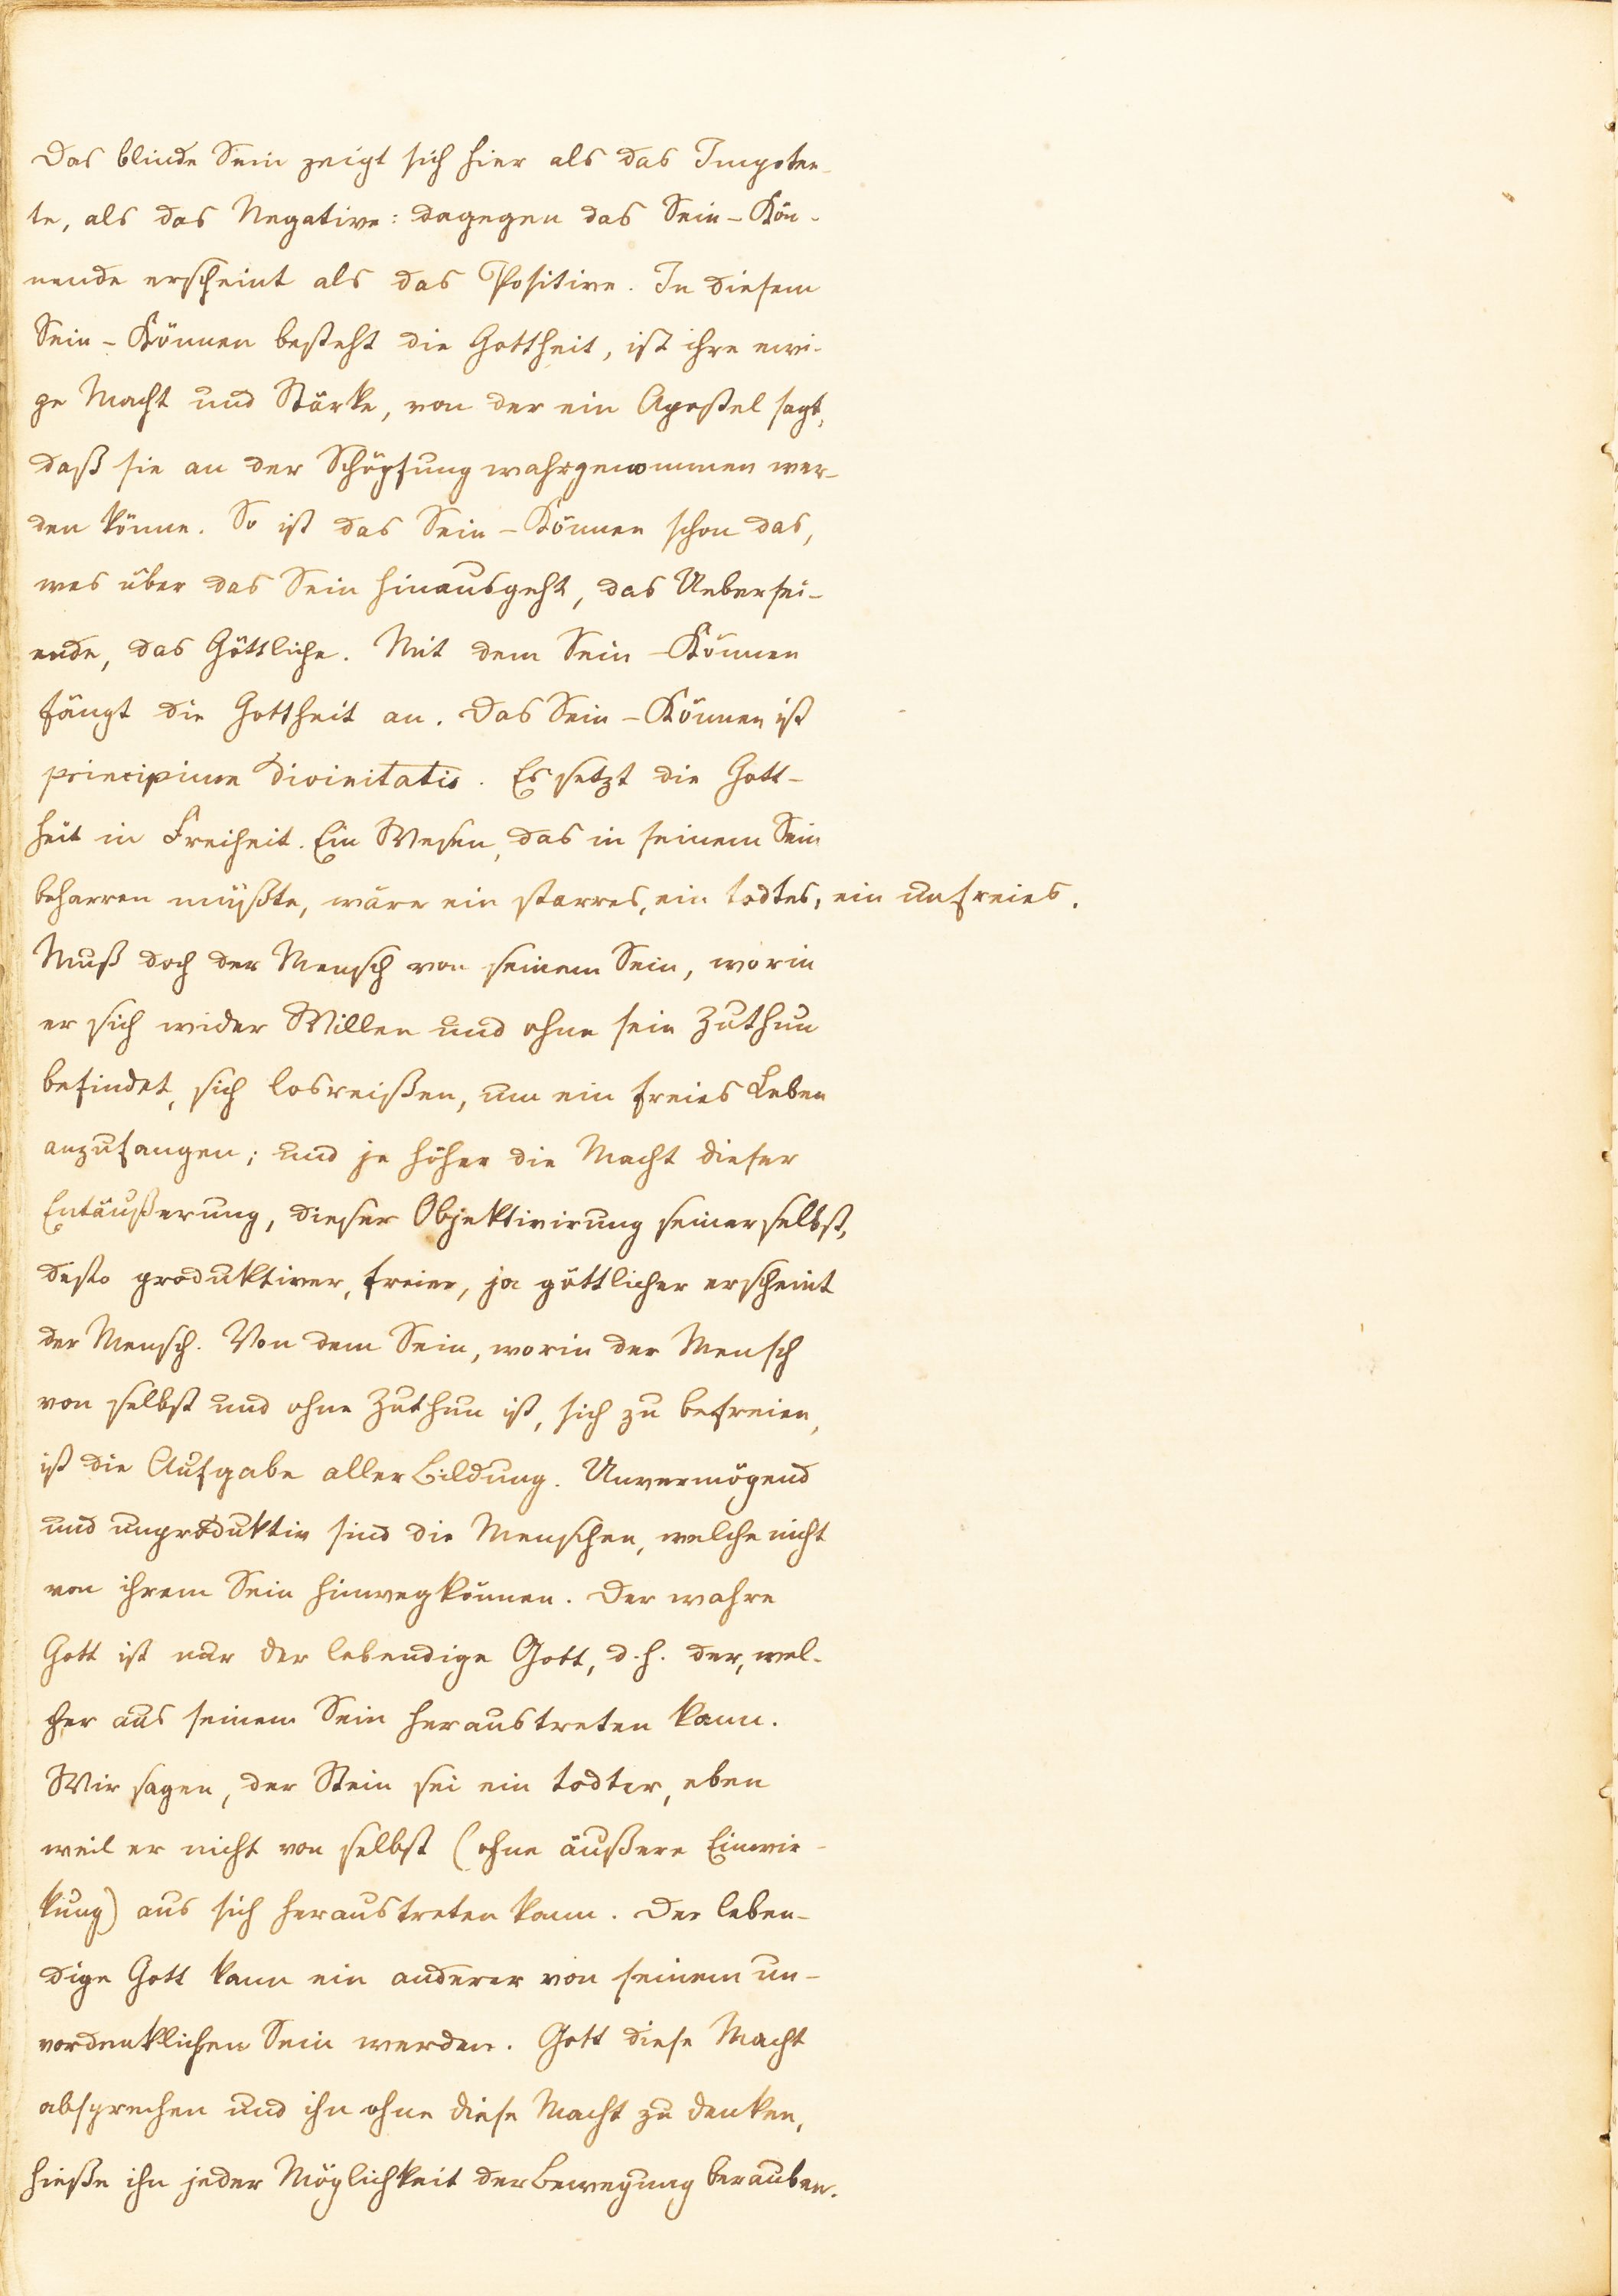 Das blinde Sein zeigt sich hier als das Impoten-
te, als das Negative: dagegen das Sein-Kön-
nende erscheint als das Positive. In diesem
Sein-Können besteht die Gottheit, ist ihre ewi-
ge Macht und Stärke, von der ein Apostel sagt,
daß sie an der Schöpfung wahrgenommen wer-
den könne. So ist das Sein-Können schon das,
was über das Sein hinausgeht, das Uebersei-
ende, das Göttliche. Mit dem Sein-Können
fängt die Gottheit an. Das Sein-Können ist
principium divinitatis. Es setzt die Gott-
heit in Freiheit. Ein Wesen, das in seinem Sein
beharren müßte, wäre ein starres, ein todtes, ein unfreies.
Muß doch der Mensch von seinem Sein, worin
er sich wider Willen und ohne sein Zuthun
befindet, sich losreißen, um ein freies Leben
anzufangen; und je höher die Macht dieser
Entäußerung, dieser Objektivirung seiner selbst,
desto produktiver, freier, ja göttlicher erscheint
der Mensch. Von dem Sein, worin der Mensch
von selbst und ohne Zuthun ist, sich zu befreien,
ist die Aufgabe aller Bildung. Unvermögend
und unproduktiv sind die Menschen, welche nicht
von ihrem Sein hinwegkönnen. Der wahre
Gott ist nur der lebendige Gott, d. h. der, wel-
cher aus seinem Sein heraustreten kann.
Wir sagen, der Stein sei ein todter, eben
weil er nicht von selbst (ohne äußere Einwir-
kung) aus sich heraustreten kann. Der leben-
dige Gott kann ein anderer von seinem un-
vordenklichen Sein werden. Gott diese Macht
absprechen und ihn ohne diese Macht zu denken,
hieße ihn jeder Möglichkeit der Bewegung berauben.